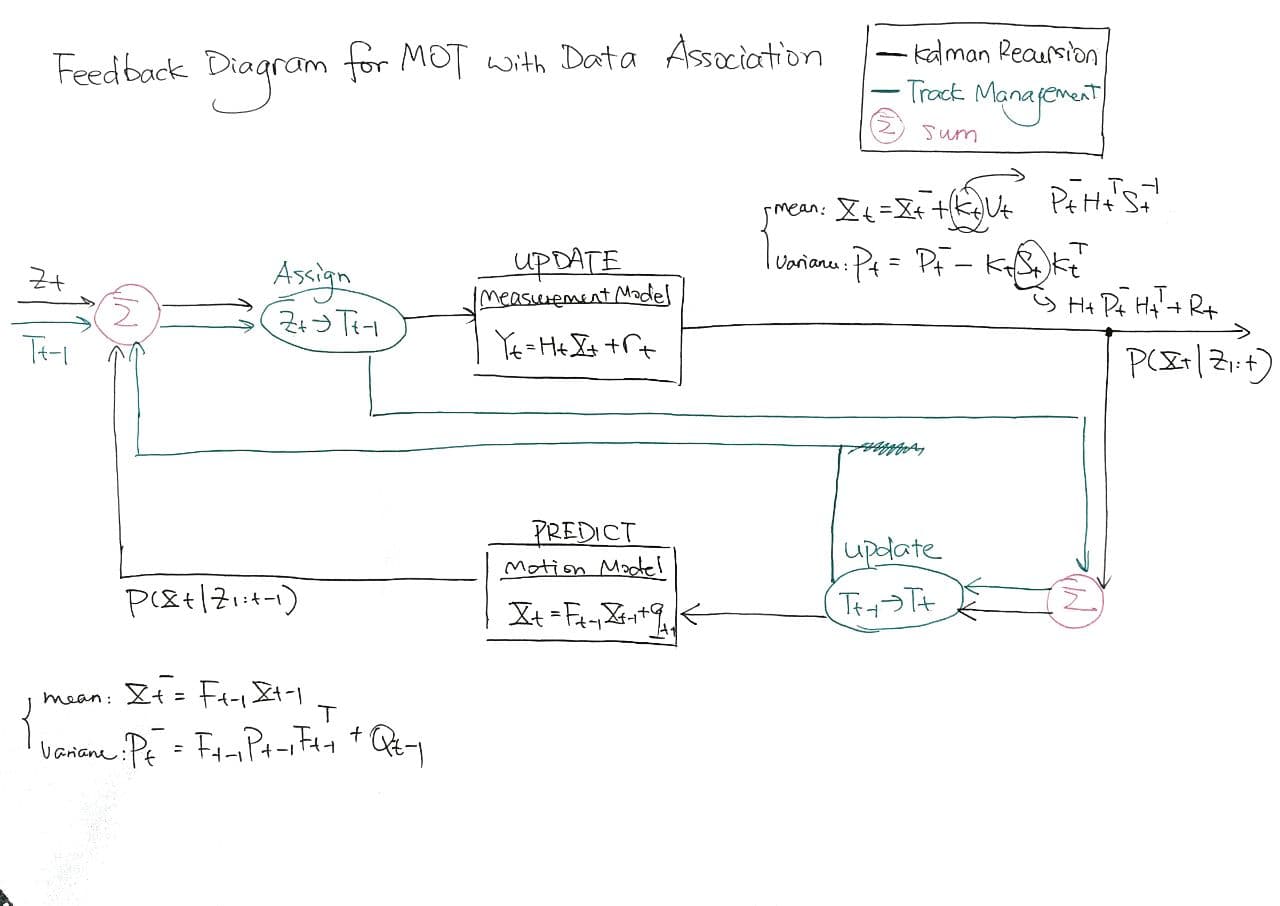 Feedback Diagram for MOT with Data Association
— Kalman Recursion
— Track Management
Σ sum
mean: X_t = X_t^- + K_t V_t P_t^- H_t^T S_t^-1
variance: P_t = P_t^- - K_t S_t K_t^T
H_t P_t^- H_t^T + R_t
Z_t
T_t-1
Σ
Assign
Z_t → T_t-1
UPDATE
Measurement Model
Y_t = H_t X_t + r_t
P(X_t | Z_1:t)
PREDICT
Motion Model
X_t = F_t-1 X_t-1 + q_t-1
update
T_t-1 → T_t
Σ
P(X_t | Z_1:t-1)
mean: X_t^- = F_t-1 X_t-1
variance: P_t^- = F_t-1 P_t-1 F_t-1^T + Q_t-1